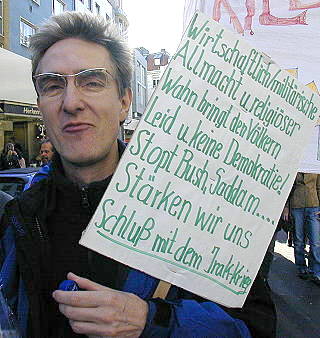 Wirtschaftlich/militärische
Allmacht u. religiöser
Wahn bringt den Völkern
Leid u. keine Demokratie!
Stopt Bush, Saddam....
Stärken wir uns
Schluß mit dem Irakkrieg